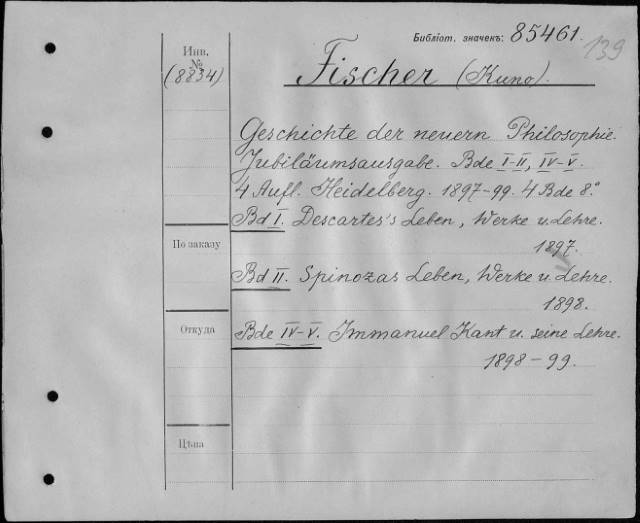 Библіот. значекъ: 85461.
139
Инв.
№
(8834)
Fischer (Kuno).
Geschichte der neuern Philosophie.
Jubiläumsausgabe. Bde I-II, IV-V.
4 Aufl. Heidelberg. 1897-99. 4 Bde 8.°
Bd I. Descartes's Leben, Werke u. Lehre.
1897.
По заказу
Bd II. Spinozas Leben, Werke u. Lehre.
1898.
Откуда
Bde IV-V. Immanuel Kant u. seine Lehre.
1898-99.
Цѣна